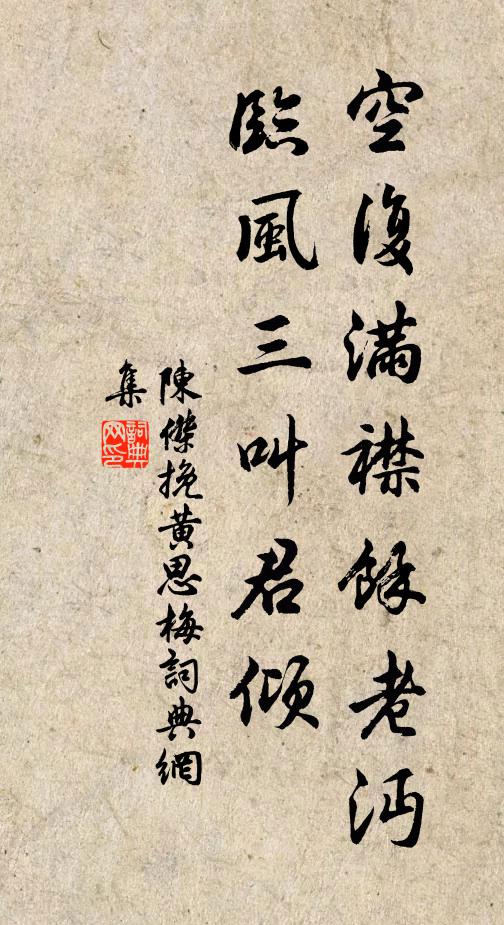 空復滿襟餘老沔
臨風三叫君傾
陳傑挽黃思梅詞典網
集
詞典网印